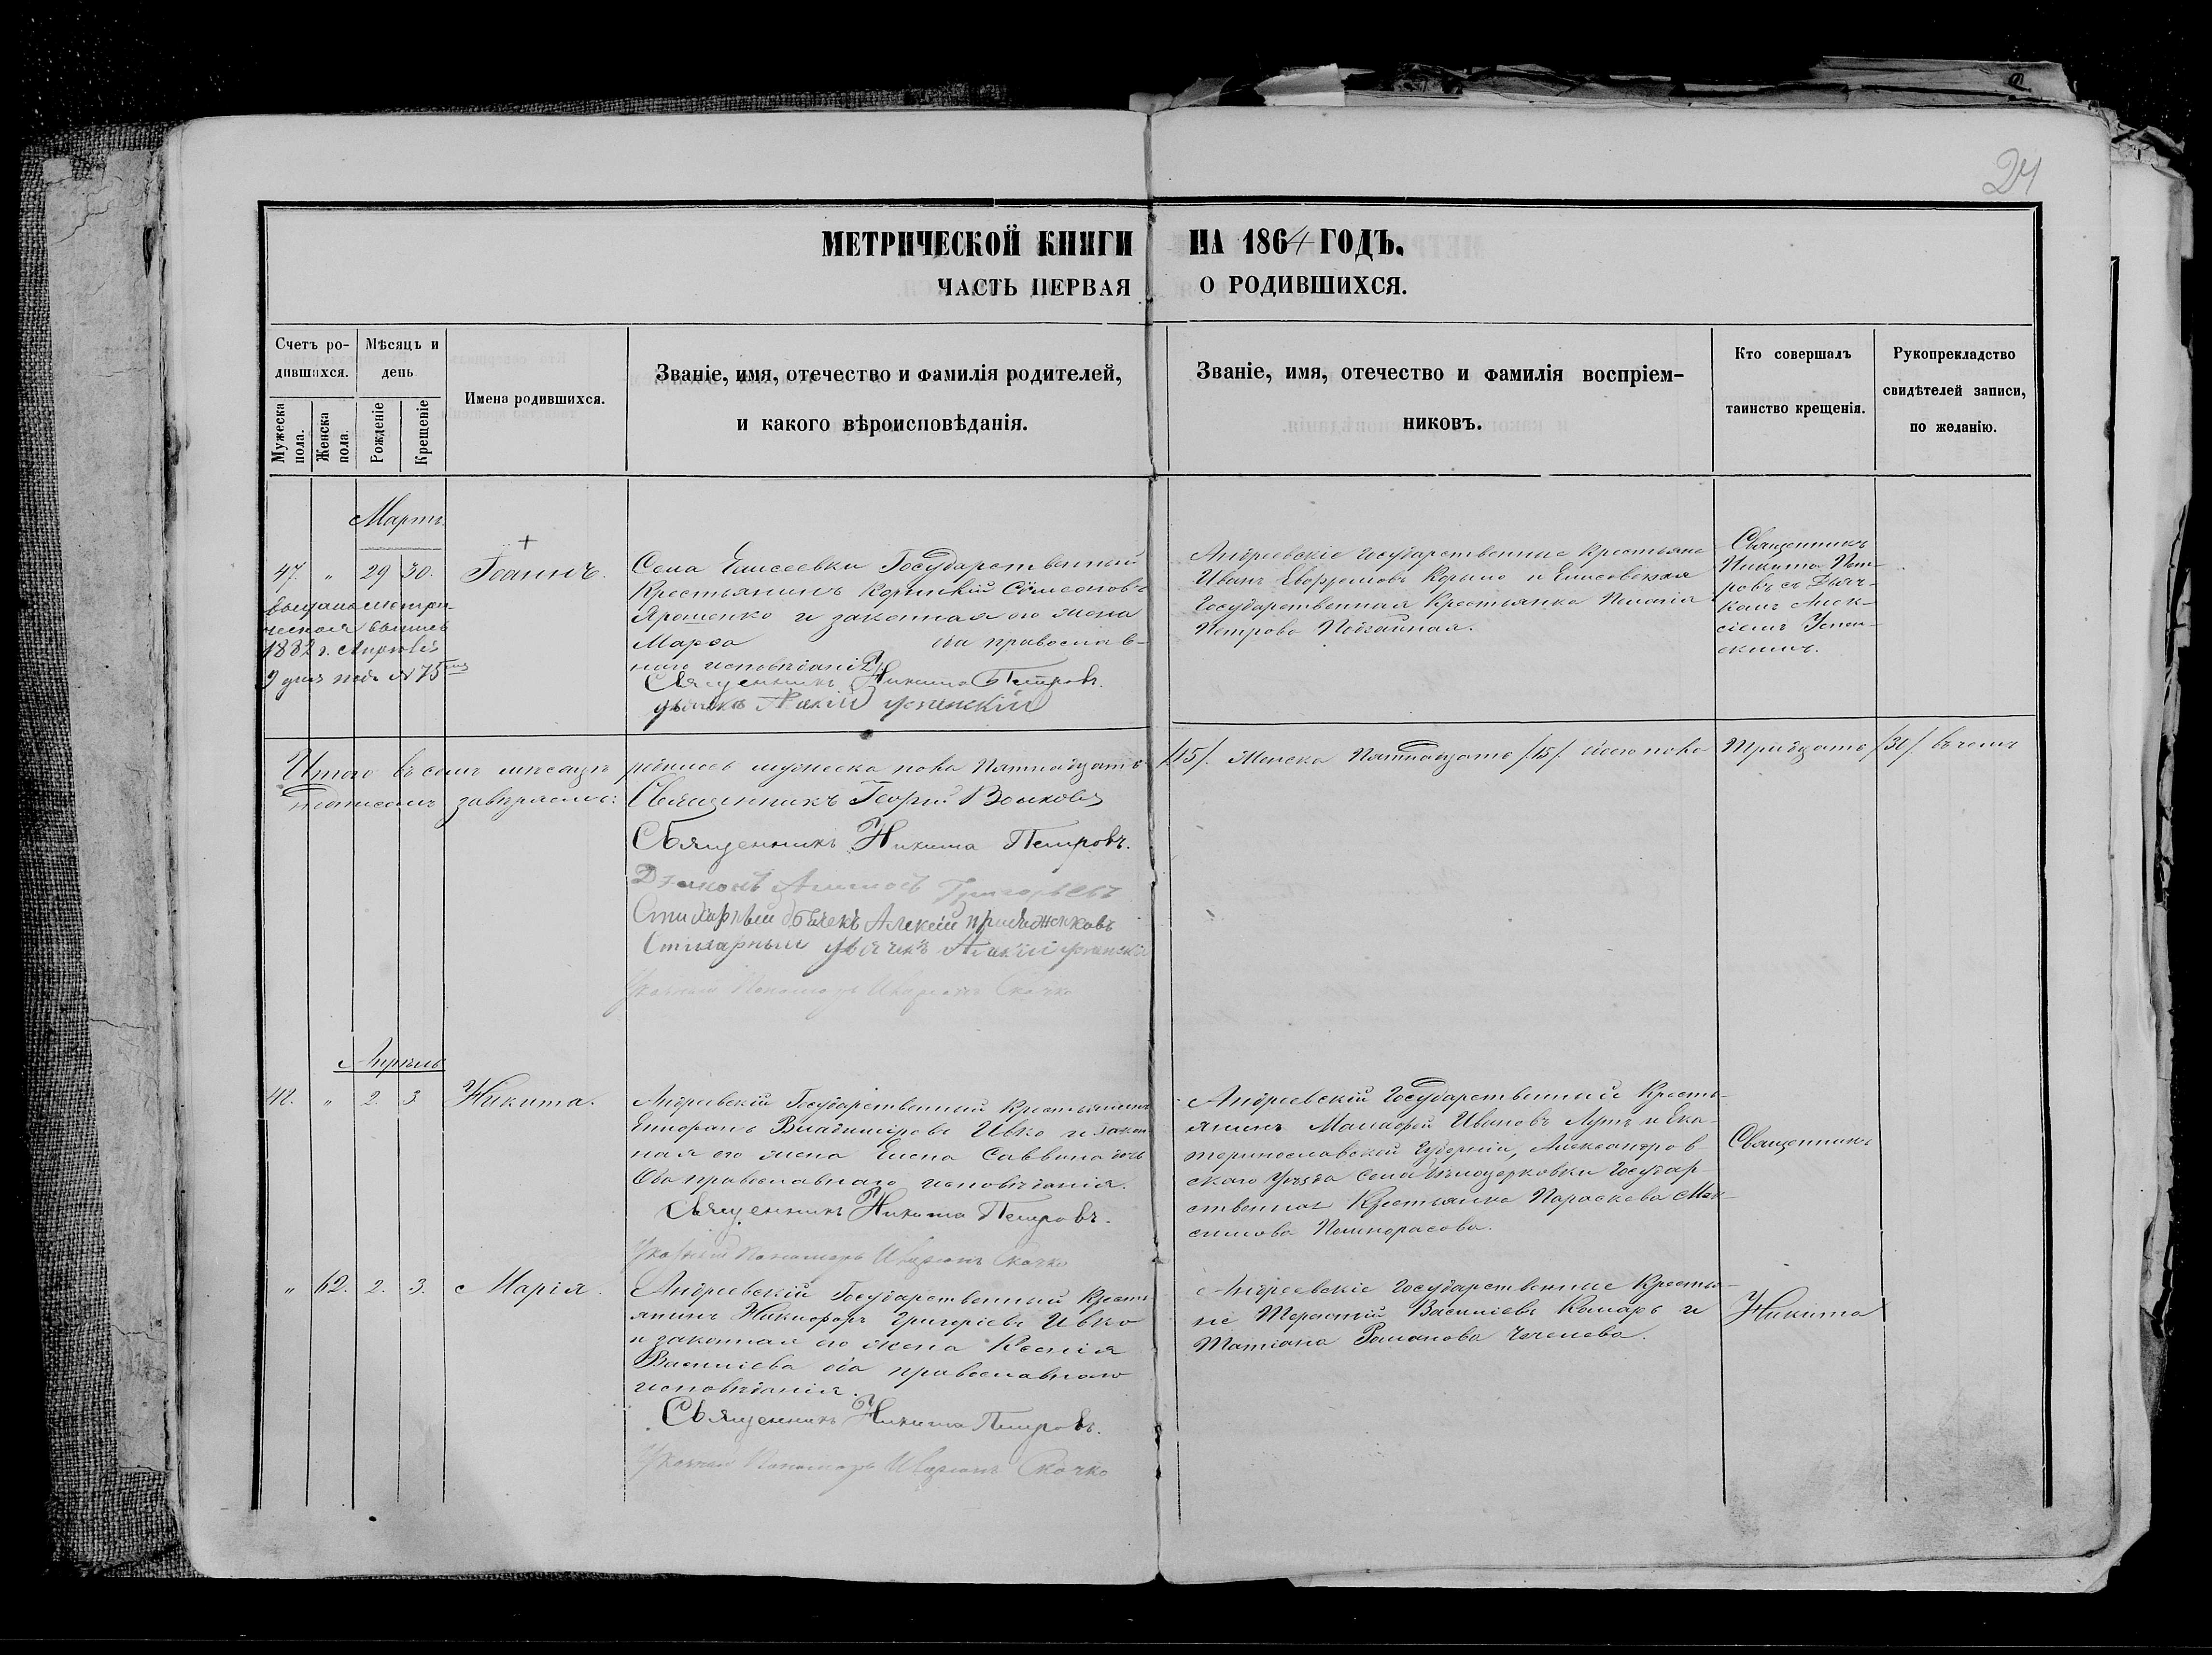 24
МЕТРИЧЕСКОЙ КНИГИ НА 1864 ГОДЪ.
ЧАСТЬ ПЕРВАЯ О РОДИВШИХСЯ.
Счетъ ро-
дившихся.
Мужеска
пола.
Женска
пола.
Мѣсяцъ и
день
Рожденіе
Крещеніе
Имена родившихся.
Званіе, имя, отечество и фамилія родителей,
и какого вѣроисповѣданія.
Званіе, имя, отечество и фамилія воспріем-
никовъ.
Кто совершалъ
таинство крещенія.
Рукоприкладство
свидѣтелей записи,
по желанію.
Мартъ
47. " 29 30. Іоаннъ.
выдана метри-
ческая выпись
1882 г. Апрѣля
9 дня подъ № 75
Села Елисеевки Государственный
Крестьянинъ Корнилій Сѵмеоновъ
Ярошенко и законная его жена
Марѳа оба православ-
наго исповѣданія
Священникъ Никита Петровъ.
дьячекъ Алексій Успенскій
Андреевскіе Государственные Крестьяне
Иванъ и Елисеевская
Государственная Крестьянка Пелагія
Петрова
Священникъ
Никита Пет-
ровъ съ Дьяч-
комъ Алек-
сіемъ Успен-
скимъ.
Итого въ семъ мѣсяцѣ родилось мужеска пола Пятнадцать /15/. Женска Пятнадцать /15/. Обоего пола Тридцать /30/ въ чемъ
подписомъ завѣряемъ: Священникъ Георгій Волковъ
Священникъ Никита Петровъ.
Діаконъ Григорьевъ
Стихарный дьячекъ Алексій
Стихарный дьячекъ Алексій Успенскій
Указный Пономарь Иларіонъ Скачко
Апрѣль
48. " 2. 3 Никита.
Андреевскій Государственный Крестьянинъ
Владиміровъ Ивко и закон-
ная его жена Елена Саввина
Оба православнаго исповѣданія.
Священникъ Никита Петровъ.
Указный Пономарь Иларіонъ Скачко
Андреевскій Государственный Кресть-
янинъ Ивановъ и Ека-
теринославской Губерніи, Александров-
скаго Уѣзда Села Бѣлоцерковки Государ-
ственная Крестьянка Параскева Мак-
симова
Священникъ
" 62. 2. 3. Марія.
Андреевскій Государственный Кресть-
янинъ Никифоръ Григоріевъ Ивко
и законная его жена Ксенія
Василіева оба православнаго
исповѣданія.
Священникъ Никита Петровъ.
Указный Пономарь Иларіонъ Скачко
Андреевскіе Государственные Крестья-
не Терентій Василіевъ Комаръ и
Татіана Романова
Никита